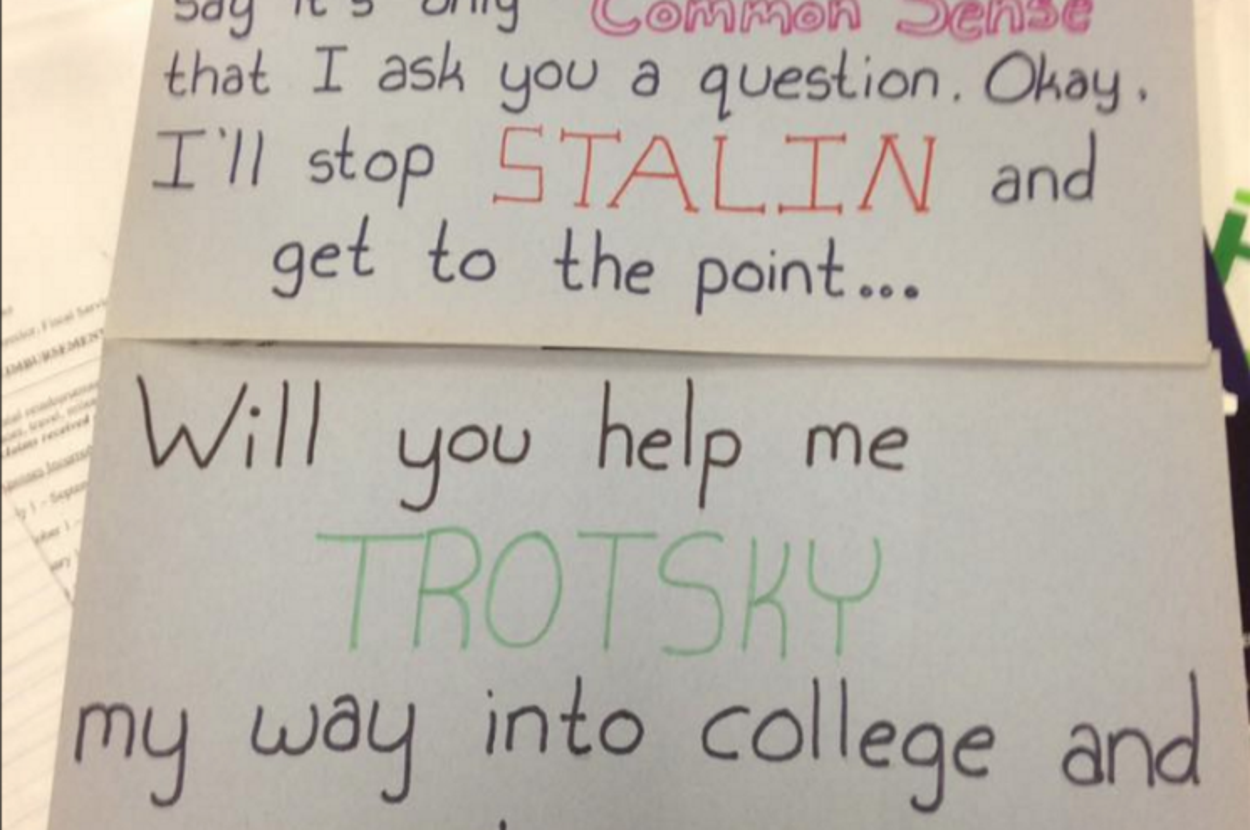 say it's only Common Sense
that I ask you a question. Okay.
I'll stop STALIN and
get to the point...
Will you help me
TROTSKY
my way into college and